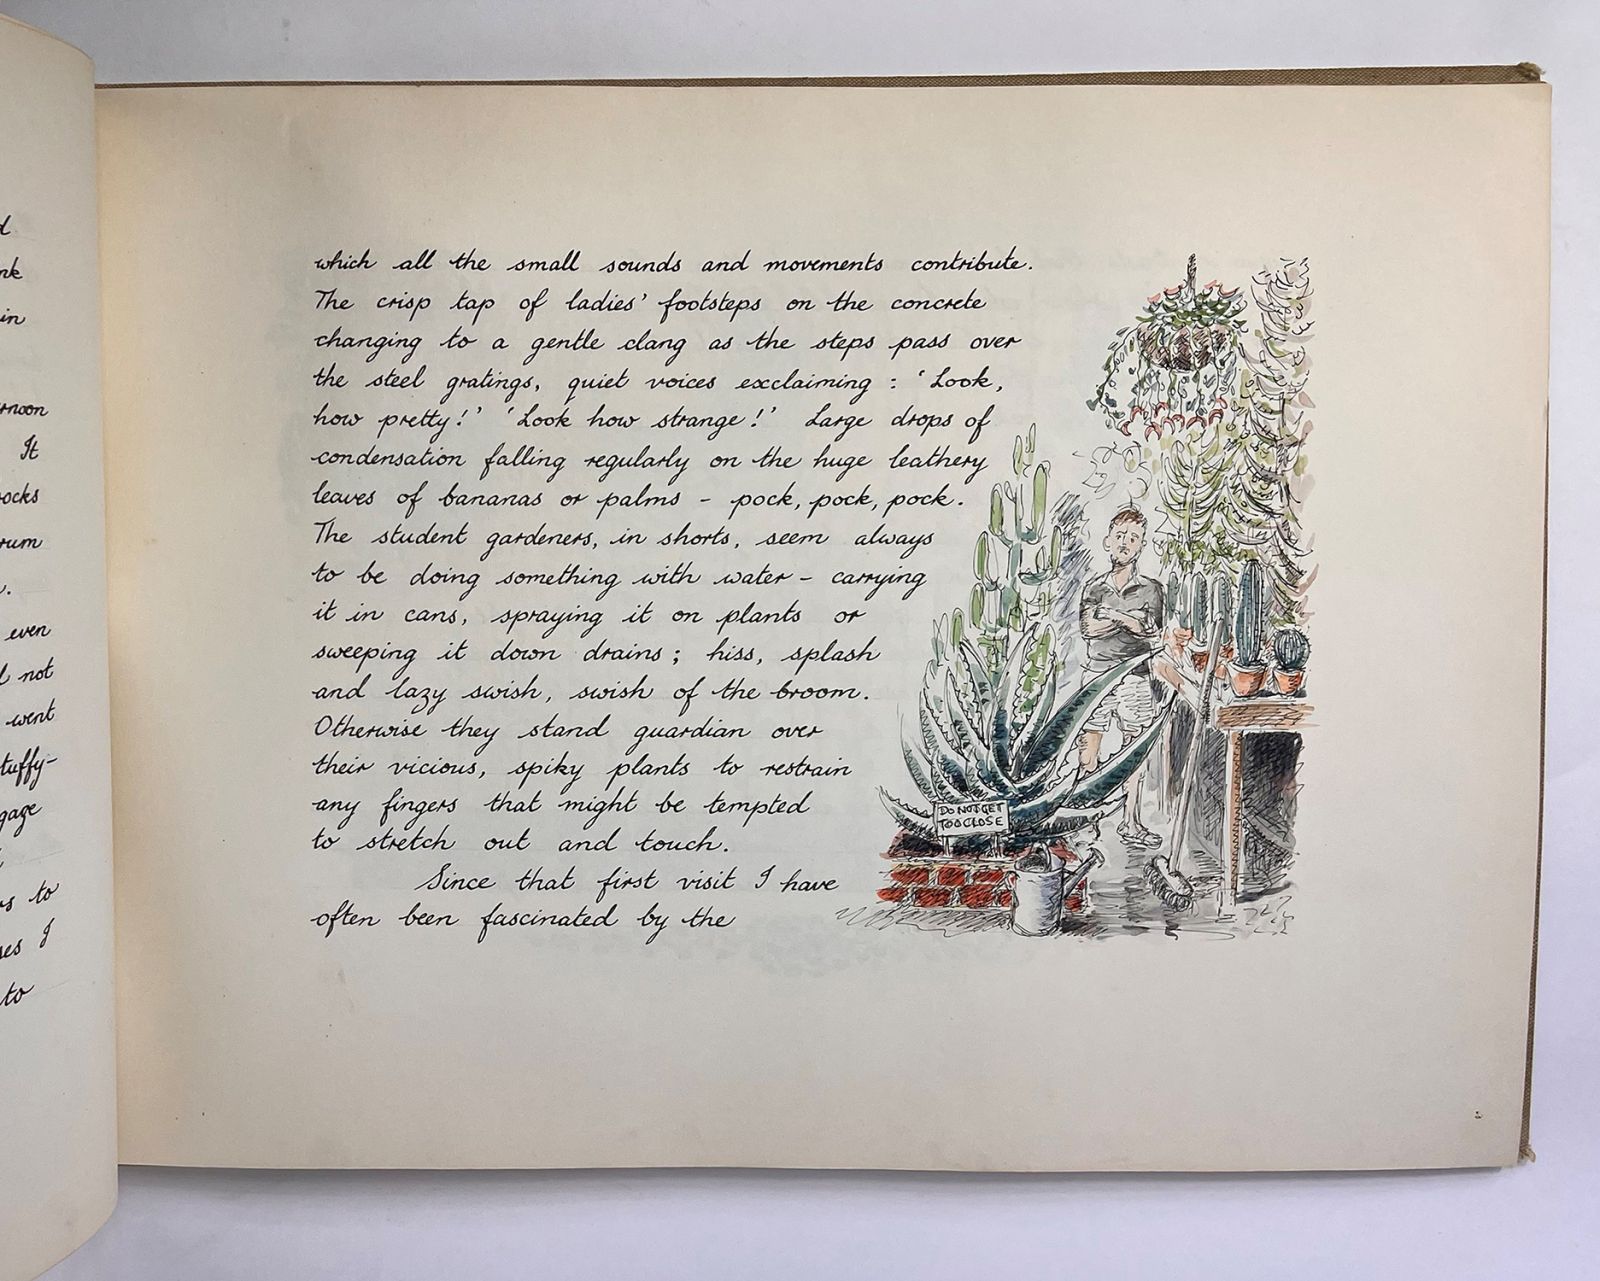 d
nk
in
rnoon
It
ocks
rum
even
not
went
tuffy-
gage
rs to
ses I
to
which all the small sounds and movements contribute.
The crisp tap of ladies' footsteps on the concrete
changing to a gentle clang as the steps pass over
the steel gratings, quiet voices exclaiming : 'Look,
how pretty!' 'Look how strange!' Large drops of
condensation falling regularly on the huge leathery
leaves of bananas or palms - pock, pock, pock.
The student gardeners, in shorts, seem always
to be doing something with water - carrying
it in cans, spraying it on plants or
sweeping it down drains; hiss, splash
and lazy swish, swish of the broom.
Otherwise they stand guardian over
their vicious, spiky plants to restrain
any fingers that might be tempted
to stretch out and touch.
Since that first visit I have
often been fascinated by the
DO NOT GET
TOO CLOSE